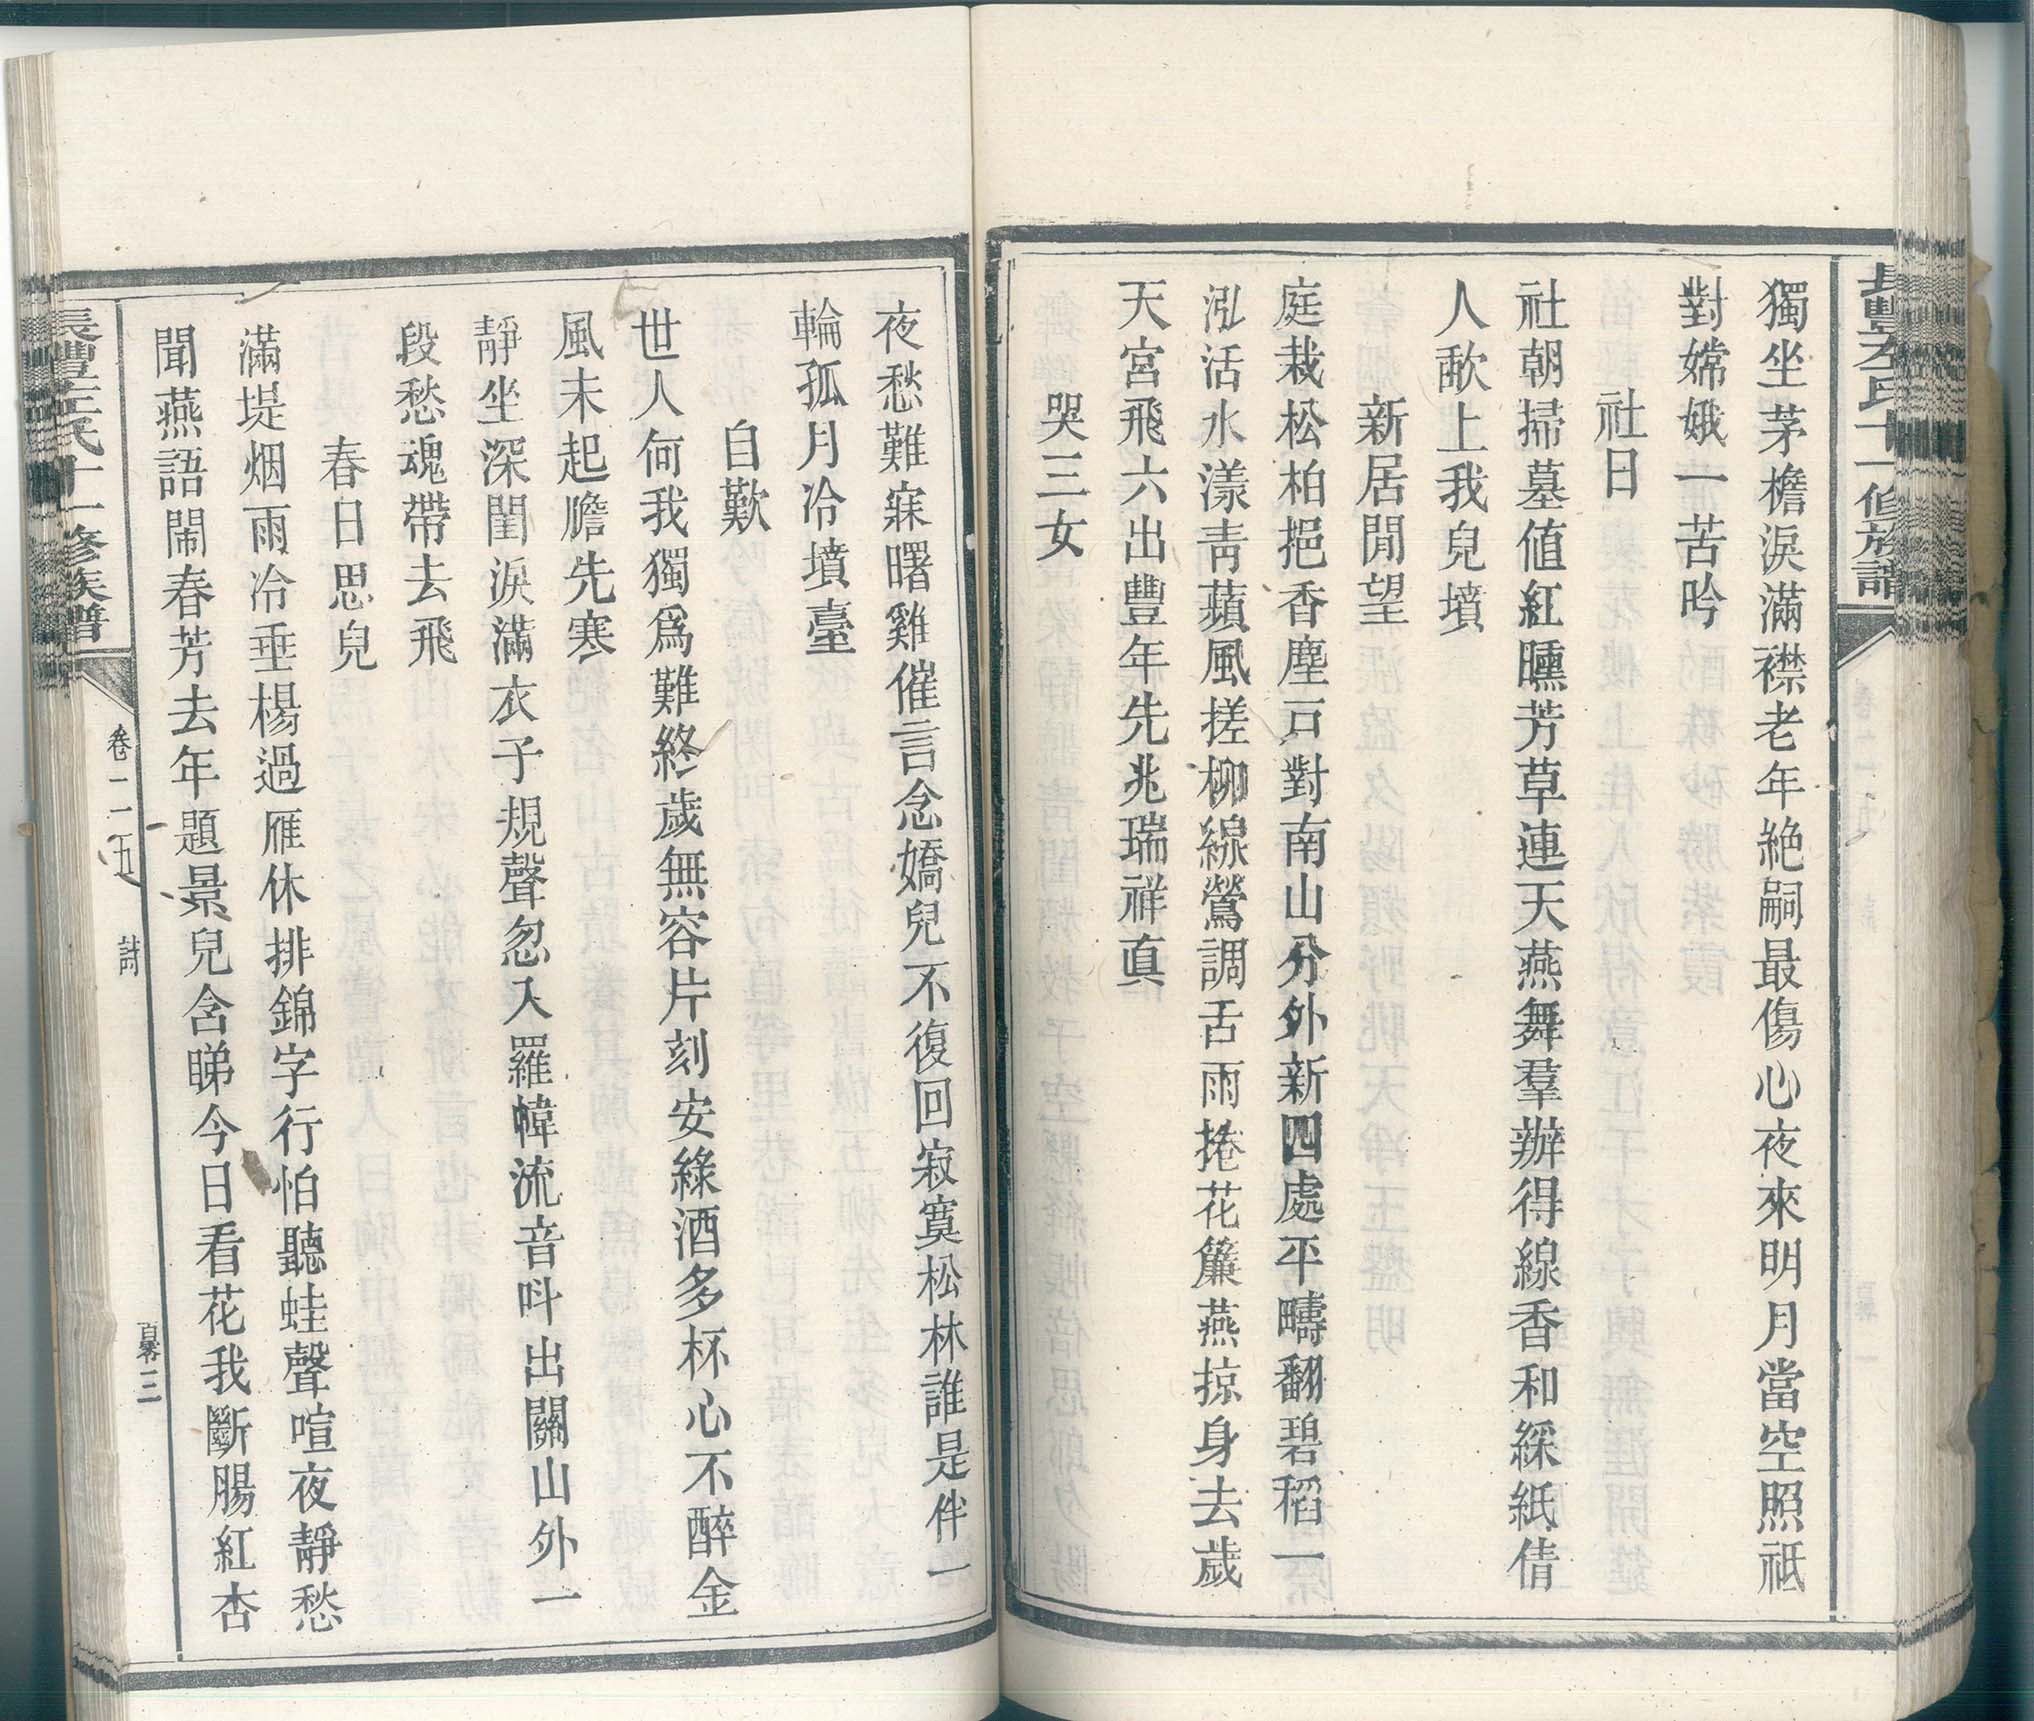 獨坐茅檐淚滿襟老年絶嗣最傷心夜來明月當空照祗
對嫦娥一苦吟
社日
社朝掃墓値紅曛芳草連天燕舞羣辦得線香和綵紙倩
人歊上我兒墳
新居閒望
庭栽松柏挹香塵戸對南山分外新四處平疇翻碧稻一
泓活水漾靑蘋風搓柳線鶯調舌雨捲花簾燕掠身去歲
天宮飛六出豐年先兆瑞祥眞
哭三女
夜愁難寐曙雞催言念嬌兒不復回寂寞松林誰是伴一
輪孤月冷墳臺
自歎
世人何我獨爲難終歲無容片刻安綠酒多杯心不醉金
風未起膽先寒
靜坐深閨淚滿衣子規聲忽入羅幃流音呌出關山外一
段愁魂帶去飛
春日思兒
滿堤烟雨冷垂楊過雁休排錦字行怕聽蛙聲喧夜靜愁
聞燕語鬧春芳去年題景兒含睇今日看花我斷腸紅杏
氏十一修族譜
卷二五
詩
三